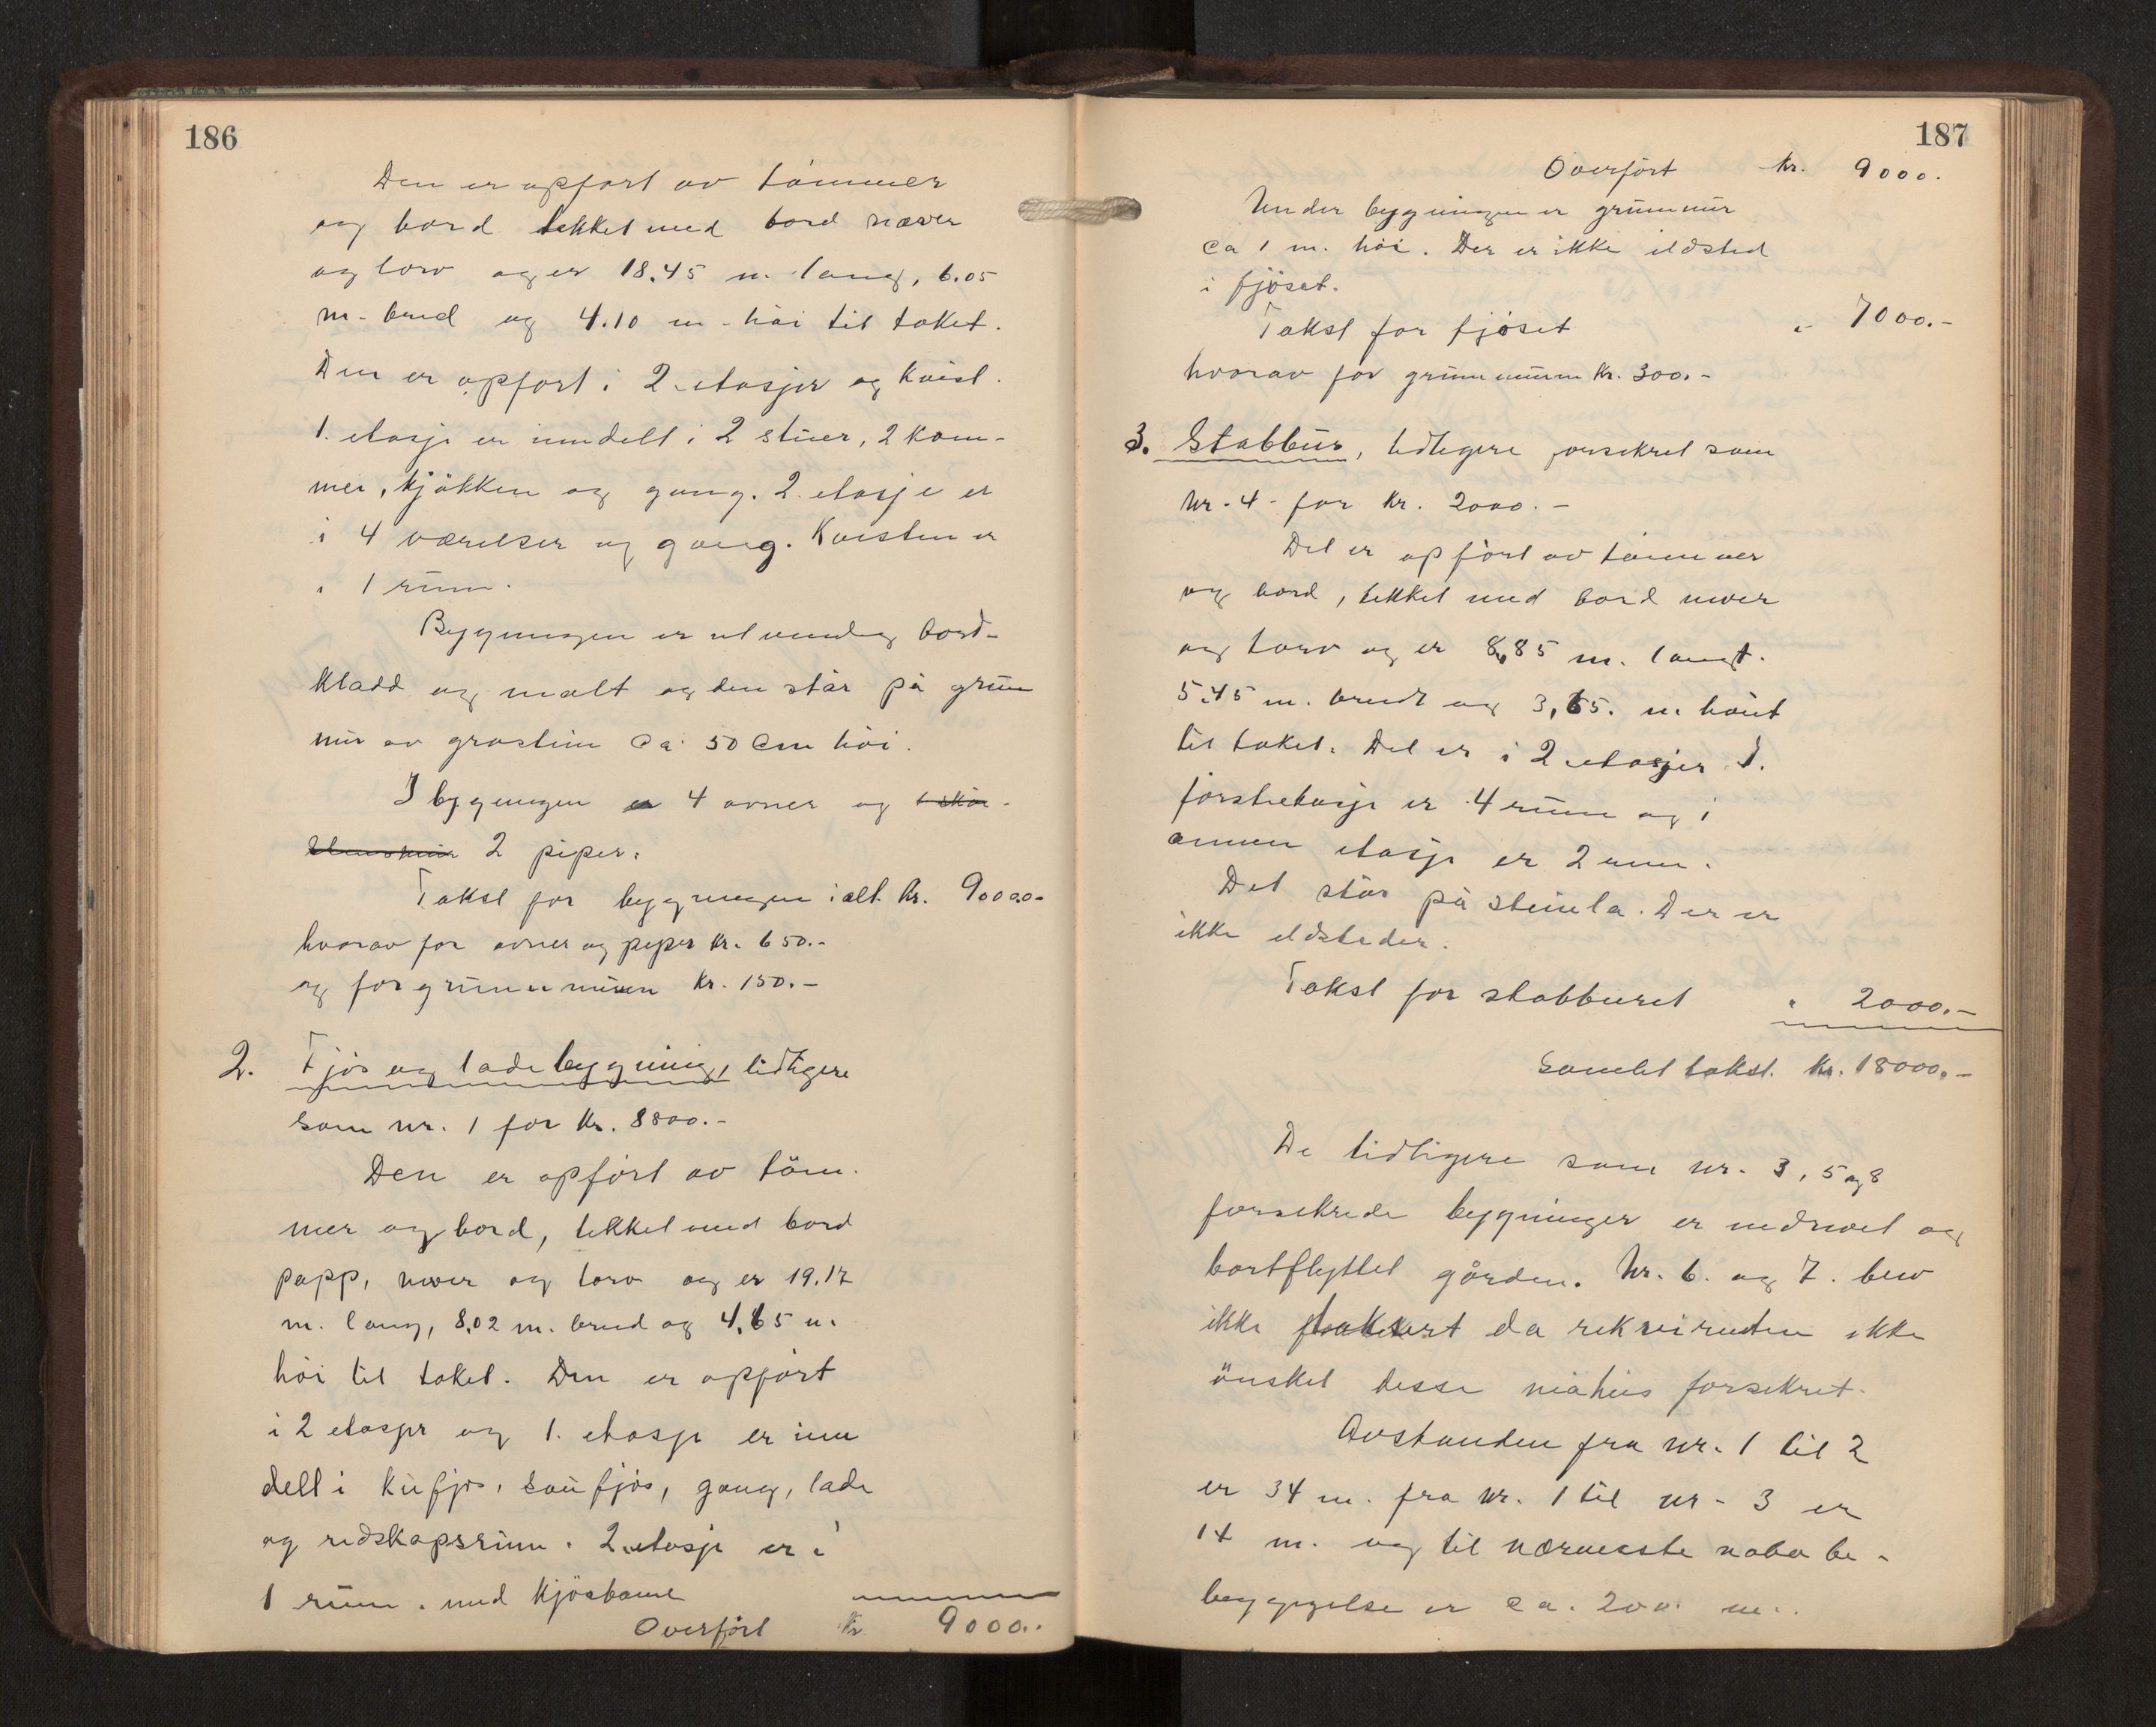 186
Den er opført av tømmer
og bord tekket med bord næver
og torv og er 18.45 m. lang, 6.05
m. bred og 4.10 m. høi til taket.
Den er opført i 2 etasjer og kvist.
1. etasje er inndelt i 2 stuer, 2 kam-
mer, kjøkken og gang. 2. etasje er
i 4 værelser og gang. Kvisten er
i 1 rum.
Bygningen er utvendig bord-
kladd og malt og den står på grun
mur av gråstein ca. 50 cm høi.
I bygningen er 4 ovner og 1 skor-
stensmur 2 piper.
Takst for bygningen i alt kr. 9000.-
hvorav for ovner og piper kr. 650.-
og for grunnmuren kr. 150.-
2. Fjøs og ladebygning, tidligere
som nr. 1 for kr. 8800.-
Den er opført av tøm-
mer og bord, tekket med bord
papp, never og torv og er 19.17
m. lang, 8.02 m. bred og 4,65 m.
høi til taket. Den er opført
i 2 etasjer og 1. etasje er inn
delt i kufjøs, saufjøs, gang, lade
og redskapsrum. 2. etasje er i
1 rum. med kjørebane
Overført kr 9000.-
187
Overført kr. 9000.
Under bygningen er grunnmur
ca 1 m. høi. Der er ikke ildsted
i fjøset.
Takst for fjøset " 7000.-
hvorav for grunnmuren kr. 300.-
3. Stabbur, tidligere forsikret som
nr. 4 for kr. 2000.-
Det er opført av tømmer
og bord, tekket med bord never
og torv og er 8,85 m. langt.
5.45 m. bredt og 3,65. m høit
til taket. Det er i 2 etasjer I.
førsteetasje er 4 rum og i
annen etasje er 2 rum.
Det står på steinla. Der er
ikke ildsteder.
Takst for stabburet " 2000.-
Samlet takst. kr. 18000.-
De tidligere som nr. 3, 5 og 8
forsikrede bygninger er nedrevet og
bortflyttet gården. Nr. 6. og 7. blev
ikke taksert da rekvirenten ikke
ønsket disse forsikret.
Avstanden fra nr. 1 til 2
er 34 m. fra nr. 1 til nr. 3 er
14 m. og til nærmeste nabo be-
byggelse er ca. 200 m.